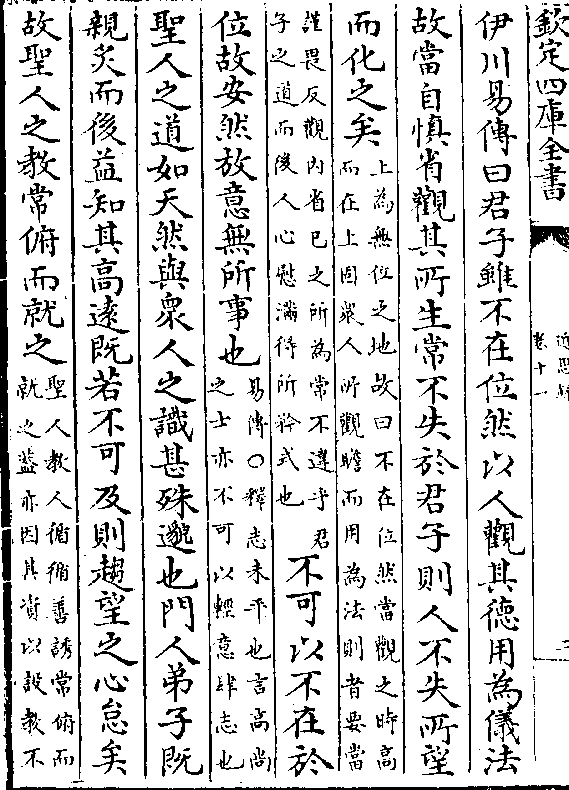 欽定四庫全書
近思錄
卷十一
伊川易傳曰君子雖不在位然以人觀其德用為儀法
故當自慎省觀其所生常不失於君子則人不失所望
而化之矣
上為無位之地故曰不在位然當觀之時高
而在上固衆人所觀瞻而用為法則者要當
謹畏反觀内省已之所為常不違乎君
子之道而後人心慰滿得所矜式也
不可以不在於
位故安然放意無所事也
易傳○釋志未平也言高尚
之士亦不可以輕意肆志也
聖人之道如天然與衆人之識甚殊邈也門人弟子既
親炙而後益知其高遠既若不可及則趨望之心怠矣
故聖人之教常俯而就之
聖人教人循循善誘常俯而
就之蓋亦因其資以設教不